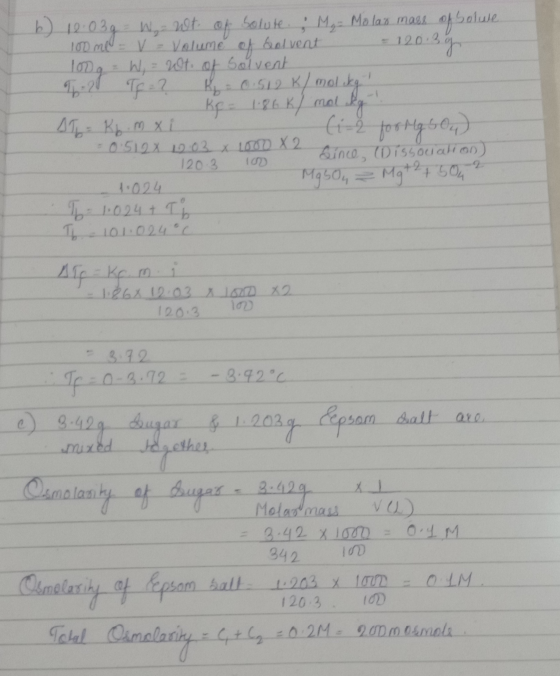 b) 12.03g = W₂ = Wt. of Solute ; M₂ = Molar mass of Solute
100 ml = V = Volume of Solvent = 120.3 g
100g = W₁ = Wt. of Solvent
Tb = ? Tf = ? Kb = 0.512 K/mol kg⁻¹
Kf = 1.86 K/mol kg⁻¹
ΔTb = Kb . m × i (i=2 for MgSO₄)
= 0.512 × 12.03/120.3 × 1000/100 × 2 Since, (Dissociation)
MgSO₄ ⇌ Mg⁺² + SO₄⁻²
= 1.024
∴ Tb = 1.024 + T°b
Tb = 101.024°C
ΔTf = Kf . m . i
= 1.86 × 12.03/120.3 × 1000/100 × 2
= 3.72
∴ Tf = 0 - 3.72 = - 3.72°C
c) 3.42g Sugar & 1.203g Eepsom Salt are
mixed together.
Osmolarity of Sugar = 3.42g/Molar mass × 1/V(L)
= 3.42/342 × 1000/100 = 0.1 M
Osmolarity of Eepsom Salt = 1.203/120.3 × 1000/100 = 0.1M.
Total Osmolarity = C₁ + C₂ = 0.2M = 200 mosmols.